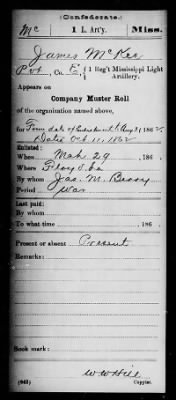 (Confederate.)
Mc 1 L. Art'y. Miss.
James McKee
Pvt, Co. E, 1 Reg't Mississippi Light Artillery.
Appears on
Company Muster Roll
of the organization named above,
for From date of Enlistment to Aug 31, 1862.
Dated Oct 11, 1862
Enlisted:
When Mch 29, 186 .
Where Floyd La
By whom Jas. M. Berry
Period War
Last paid:
By whom
To what time , 186 .
Present or absent Present
Remarks:
Book mark:
W W Hill
(642) Copyist.